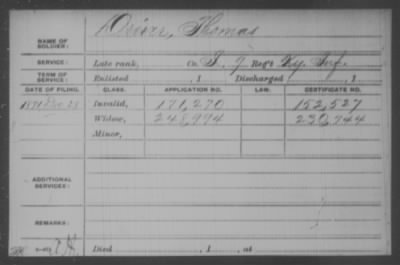 NAME OF SOLDIER: Driver, Thomas
SERVICE: Late rank, Co. I, 7 Reg't Ky. Inf.
TERM OF SERVICE: Enlisted , 1 Discharged , 1
DATE OF FILING. CLASS. APPLICATION NO. LAW. CERTIFICATE NO.
1871 28 Invalid, 171,270 152,527
Widow, 248,994 230,744
Minor,
ADDITIONAL SERVICES:
REMARKS:
Died , 1 , at